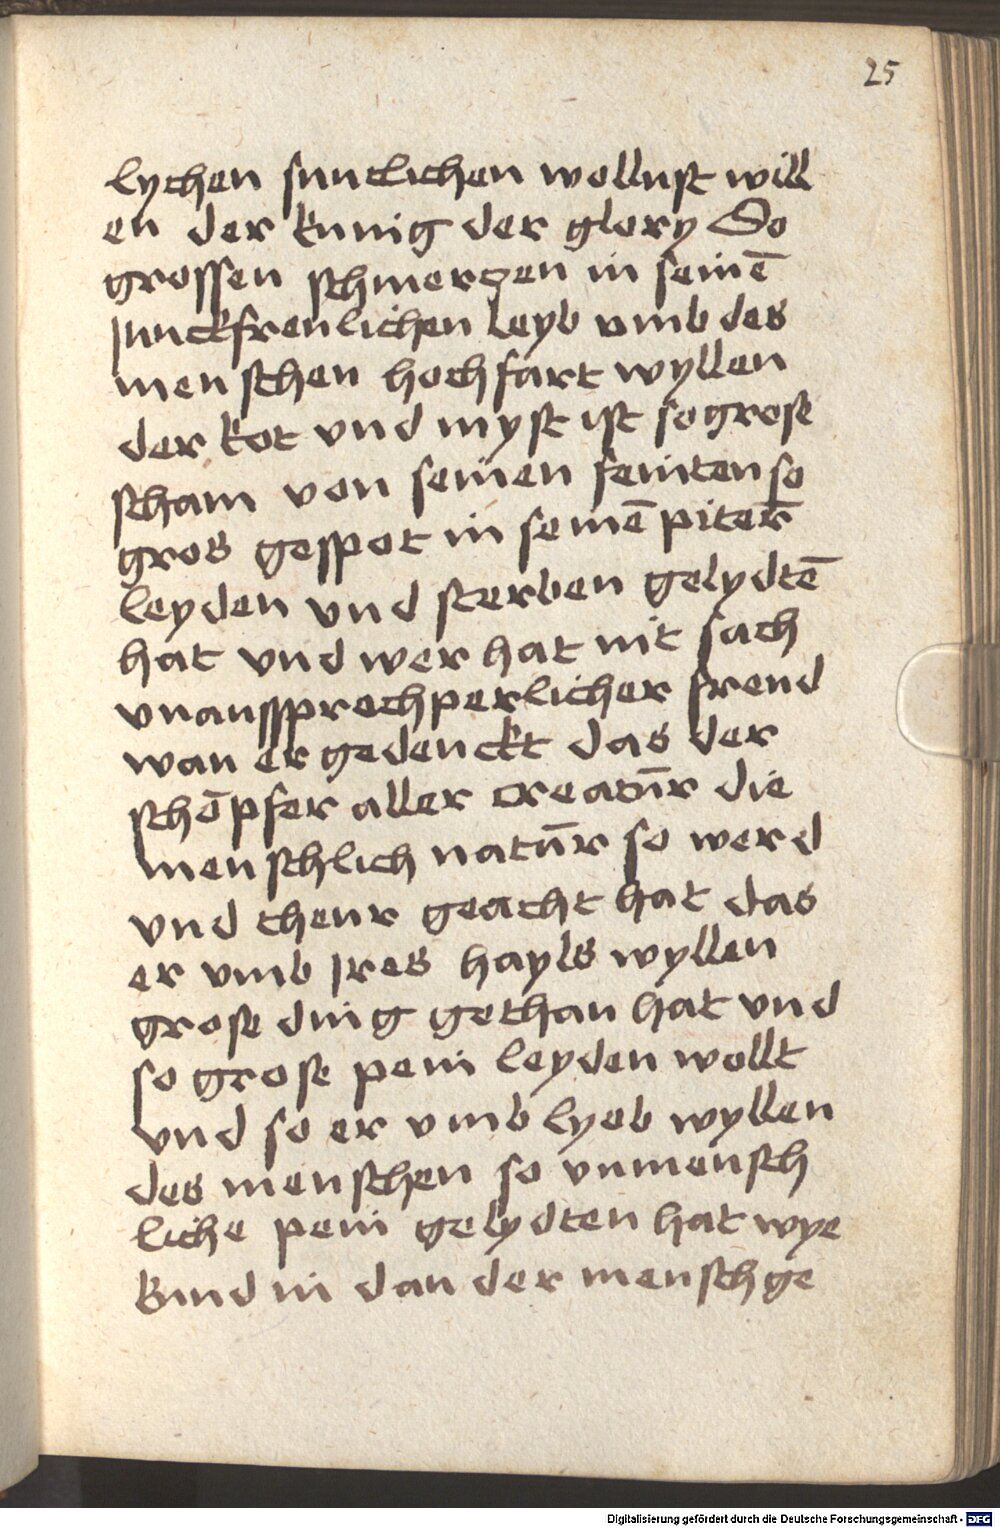 25
lychen suntlichen wollust will
en der kunig der glory So
grossen schmerczen in seinē
Junckfreulichen leyb vmb des
menschen hochfart wyllen
der kot vnd myst ist so grose
scham von seinen feinten so
gros gespot in seinē piterñ
leyden vnd sterben gelydtē
hat vnd wer hat nit sach
vnaussprechperlicher freud
wan er gedenckt das der
schöpfer aller creatur̄ die
menschlich natur̄ so werd
vnd theur geacht hat das
er vmb Jres hayls wyllen
grose ding gethan hat vnd
so grose pein leyden wollt
vnd so er vmb lyeb wyllen
des menschen so vnmensch
liche pein gelydten hat wye
kund in dan der mensch ge
Digitalisierung gefördert durch die Deutsche Forschungsgemeinschaft - DFG